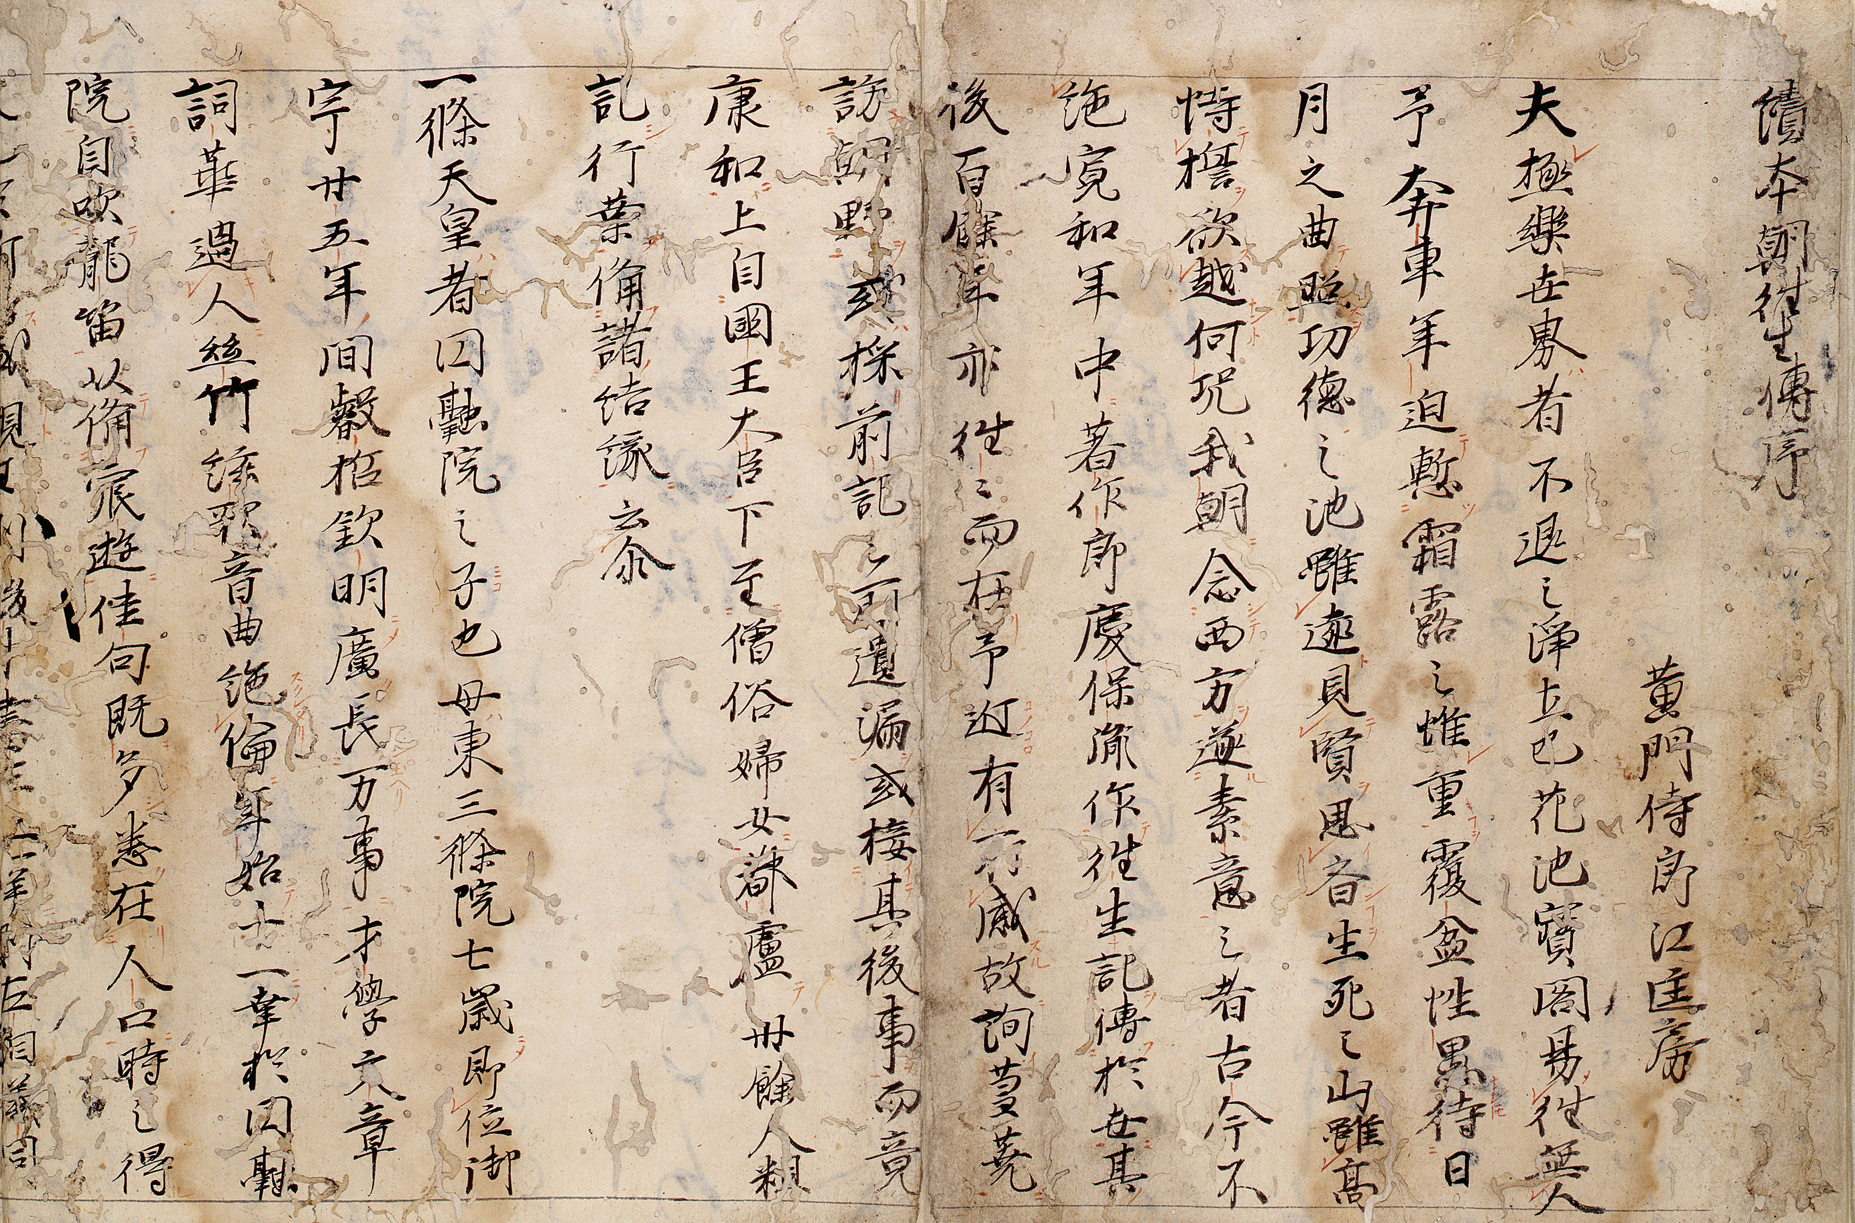 續本朝往生傳序
黄門侍郎江匡房
夫極樂世界者不退之淨土也花池寶閣易往無人
予奔車年迫慙霜露之惟重覆盆性愚待日
月之曲照功德之池雖遠見賢思齊生死之山雖高
恃擔欲越何況我朝念西方遂素意之者古今不
絶寛和年中著作郎慶保胤作往生記傳於世其
後百餘年亦往々而在予近有所感故詢蒭蕘
訪朝野或採前記之所遺漏或接其後事而竟
康和上自國王大臣下至僧俗婦女都盧卌餘人粗
記行業備諸結縁云尒
一條天皇者囙融院之子也母東三條院七歳即位御
宇廿五年間叡哲欽明廣長万事才學文章
詞華過人絲竹絃歌音曲絶倫年始十一幸於囙融
院自吹龍笛以備宸遊佳句既多悉在人口時之得